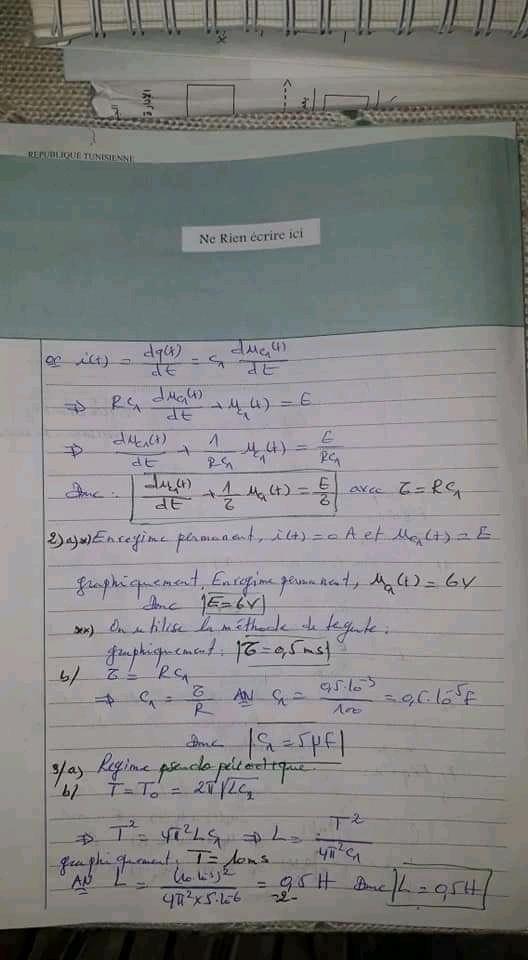 REPUBLIQUE TUNISIENNE
Ne Rien écrire ici
or i(t) = dq(t)/dt = C₁ du_C₁(t)/dt
⇒ RC₁ du_C₁(t)/dt + u_C₁(t) = E
⇒ du_C₁(t)/dt + 1/RC₁ u_C₁(t) = E/RC₁
Donc : du_C₁(t)/dt + 1/τ u_C₁(t) = E/τ avec τ = RC₁
2) a) *) En regime permanent, i(t) = 0 A et u_C₁(t) = E
graphiquement, En regime permanent, u_C₁(t) = 6V
Donc E = 6V
**) On utilise la méthode de tegente.
graphiquement : τ = 0,5 ms
b/ τ = RC₁
⇒ C₁ = τ/R AN C₁ = 0,5·10⁻³/100 = 0,5·10⁻⁵F
Donc C₁ = 5µF
3/a) Regime pseudo périodique.
b/ T = T₀ = 2π√LC₂
⇒ T² = 4π²LC₁ ⇒ L = T²/4π²C₁
graphiquement, T = 10ms
AN L = (10·10⁻³)²/4π²×5·10⁻⁶ = 0,5H Donc L = 0,5H
-2-